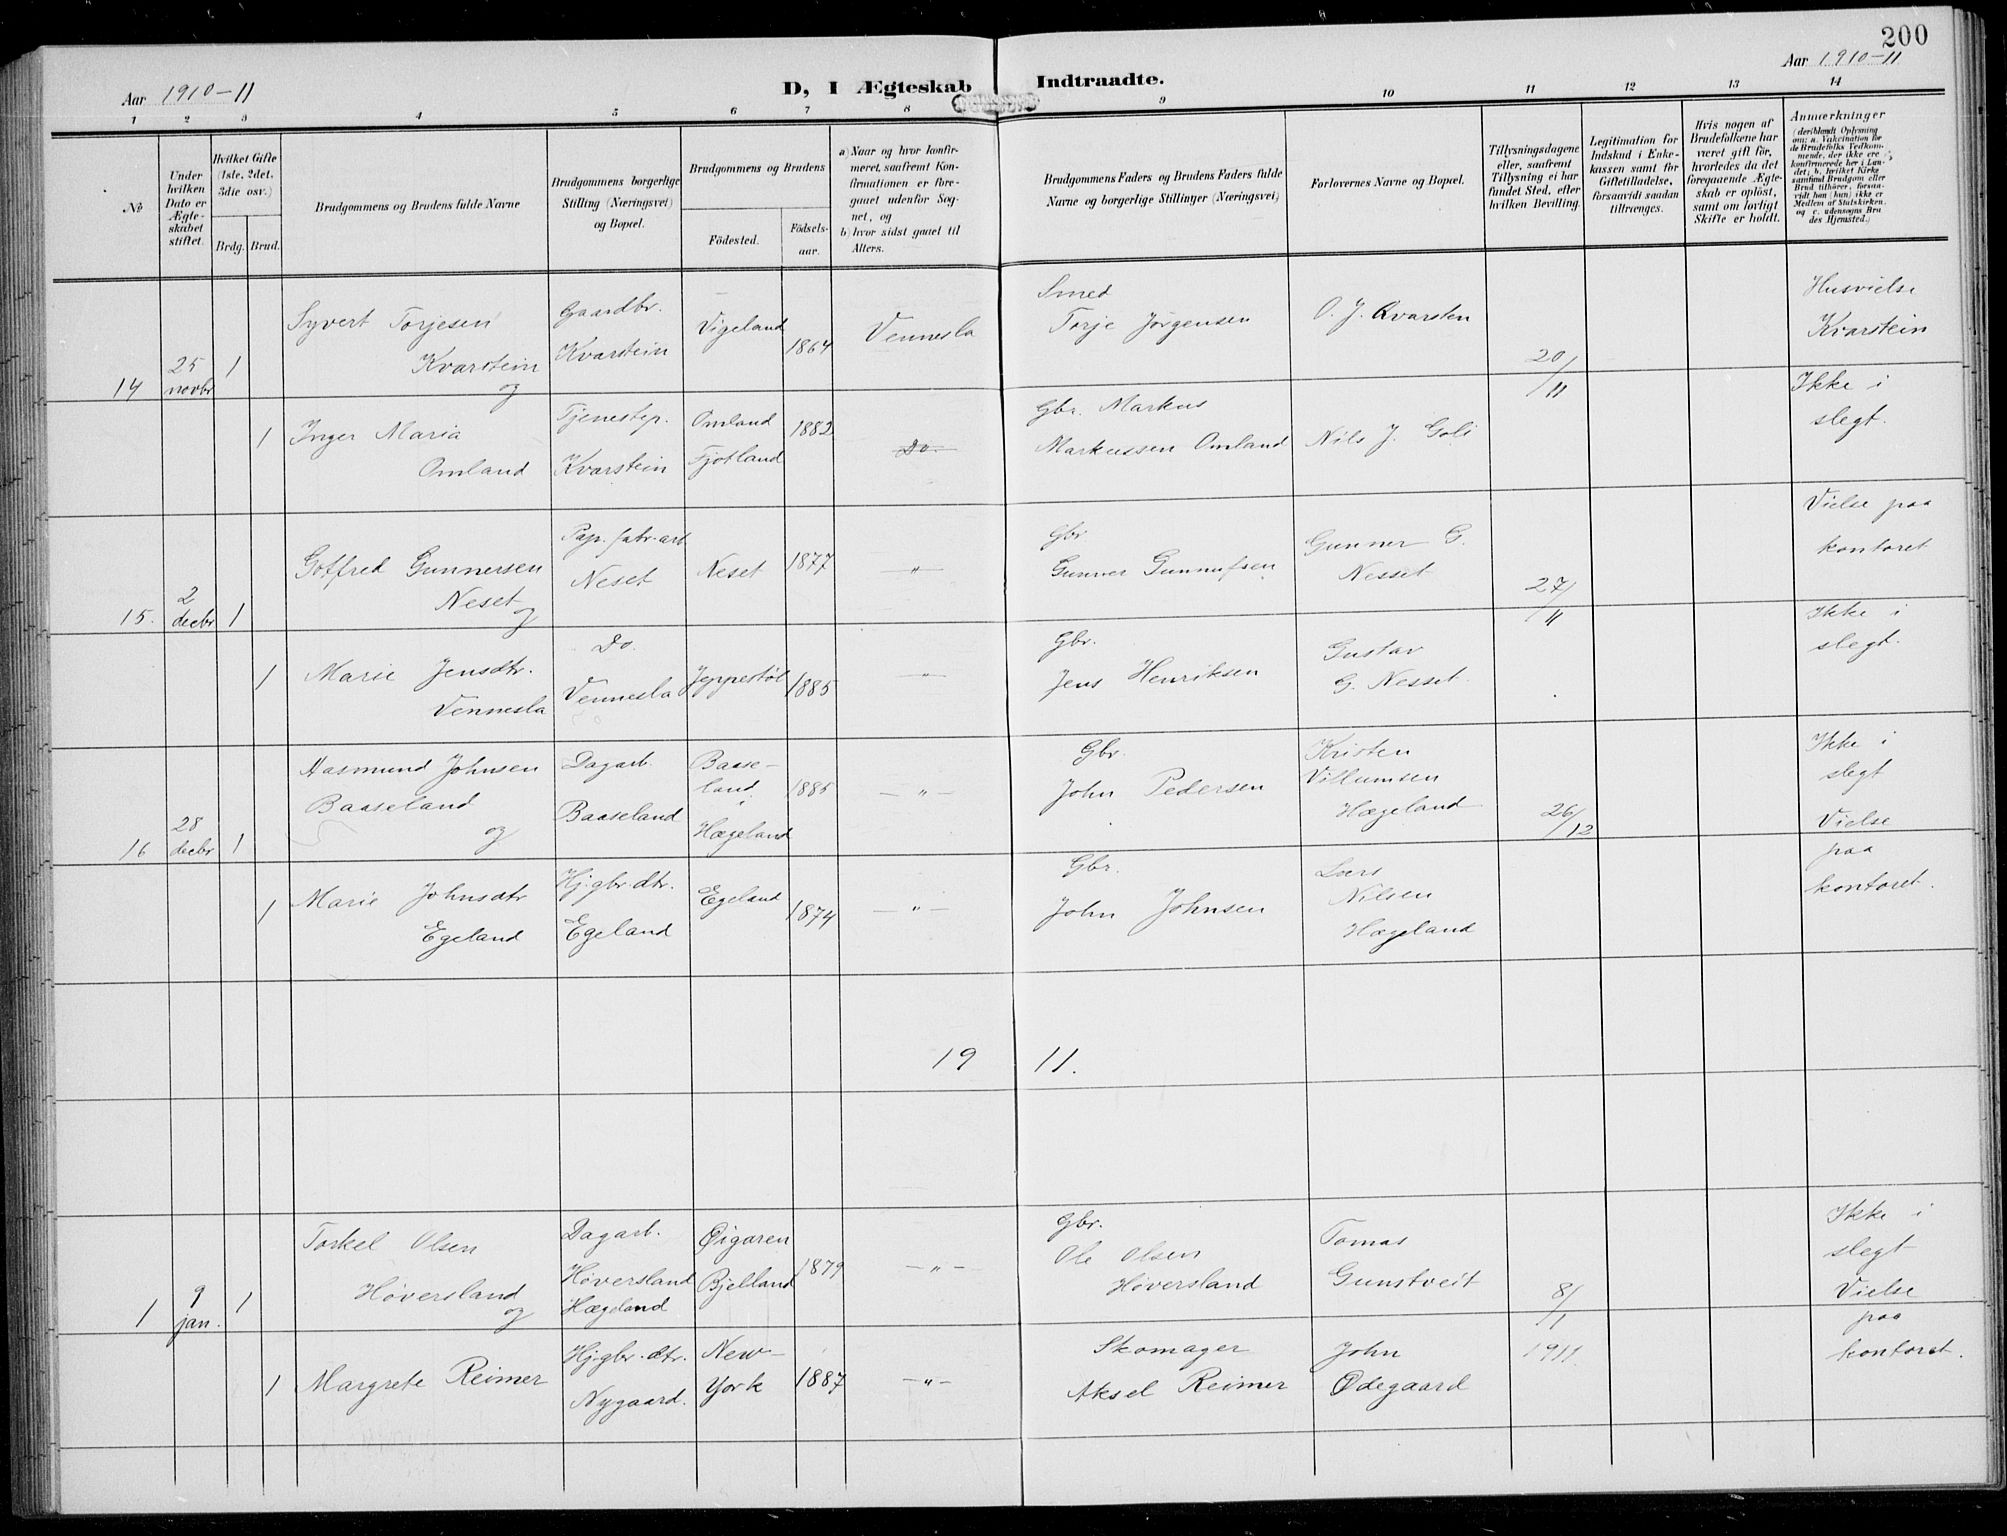 200
Aar 1910-11
D, I Ægteskab Indtraadte.
Aar 1910-11
1 2 3 4 5 6 7 8 9 10 11 12 13 14
No
Under hvilken Dato er Ægteskabet stiftet.
Hvilket Gifte (1ste, 2det, 3die osv.)
Brdg. Brud.
Brudgommens og Brudens fulde Navne
Brudgommens borgerlige Stilling (Næringsvei) og Bopæl.
Brudgommens og Brudens
Födested.
Födselsaar.
a) Naar og hvor konfirmeret, saafremt Konfirmationen er foregaaet udenför Sognet, og
b) hvor sidst gaaet til Alters.
Brudgommens Faders og Brudens Faders fulde Navne og borgerlige Stillinger (Næringsvei)
Forlovernes Navne og Bopæl.
Tillysningsdagene eller, saafremt Tillysning ei har fundet Sted, efter hvilken Bevilling.
Legitimation for Indskud i Enkekassen samt for Giftetilladelse, forsaavidt saadan tiltrænges.
Hvis nogen af Brudefolkene har været gift för, hvorledes da det foregaaende Ægteskab er oplöst, samt om lovligt Skifte er holdt.
Anmærkninger
(deriblandt Oplysning om: a. Vakcination for de Brudefolks Vedkommende, der ikke ere konfirmerede her i Landet; b. hvilket Kirkesamfund Brudgom eller Brud tilhörer, forsaavidt han (hun) ikke er Medlem af Statskirken, og c. udensogns Brudes Hjemsted.)
14
25 novbr
1
Syvert Torjesen
Kvarstein
og
Gaardbr.
Kvarstein
Vigeland
1864
Vennesla
Smed
Torje Jörgensen
O. J. Kvarsten
20/11
Husvielse
Kvarstein
Ikke i
slegt.
1
Inger Maria
Omland
Tjenestep.
Kvarstein
Omland
Fjotland
1882
Do.
Gbr. Markus
Markussen Omland
Nils J. Goli
15.
2 decbr
1
Gotfred Gunnersen
Neset
og
Pap. fabr. arb
Neset
Neset
1877
"
Gbr
Gunner Gunnufsen
Gunner G.
Nesset
27/11
Vielse paa
kontoret
Ikke i
slegt.
1
Marie Jensdtr.
Vennesla
Do.
Vennesla
Jeppestøl
1885
"
Gbr.
Jens Henriksen
Gustav
G. Nesset.
16
28 decbr
1
Aasmund Johnsen
Baaseland
og
Dagarb.
Baaseland
Baase-
land
i
Hægeland
1885
— " —
Gbr.
John Pedersen
Kristen
Villumsen
Hægeland
26/12
Ikke i
slegt
Vielse
paa
kontoret.
1
Marie Johnsdtr
Egeland
Hj. gbr. dtr.
Egeland
Egeland
1874
— " —
Gbr.
John Johnsen
Lars
Nilsen
Hægeland
19 11.
1
9 jan.
1
Torkel Olsen
Høversland
og
Dagarb.
Høversland
Hægeland
Øigaren
Bjelland
1879
— " —
Gbr.
Ole Olsen
Høversland
Tomas
Gunstveit
8/1
1911
Ikke i
slegt
Vielse
paa
kontoret.
1
Margrete Reimer
Hj. gbr. dtr.
Nygaard.
New-
York
1887
— " —
Skomager
Aksel Reimer
John
Ødegaard